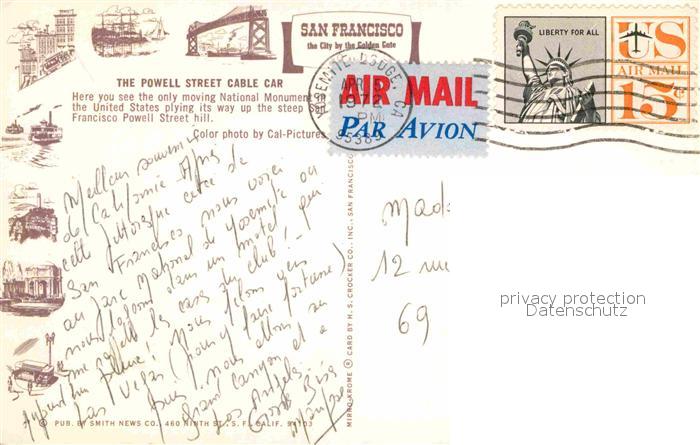 SAN FRANCISCO
the City by the Golden Gate
THE POWELL STREET CABLE CAR
Here you see the only moving National Monument in
the United States plying its way up the steep San
Francisco Powell Street hill.
Color photo by Cal-Pictures
LIBERTY FOR ALL
US
AIR MAIL
15¢
AIR MAIL
PAR AVION
YOSEMITE LODGE, CA
APR 5
1972
PM
95389
Meilleur souvenir
de Californie Après
cette pittoresque cité de
San Francisco nous voici au
au parc National de Yosemite où
nous logeons dans un motel qui
me rappelle les cases du club!
Aujourd'hui pleine! Nous filons vers
Las Vegas (pour y faire fortune)
puis nous allons au
grand canyon et a
Los Angeles
Grosses Bises
Mad.
12 rue
69
MIRRO-KROME ® CARD BY H. S. CROCKER CO., INC., SAN FRANCISCO
© PUB. BY SMITH NEWS CO., 460 NINTH ST., S. F., CALIF. 94103
privacy protection
Datenschutz